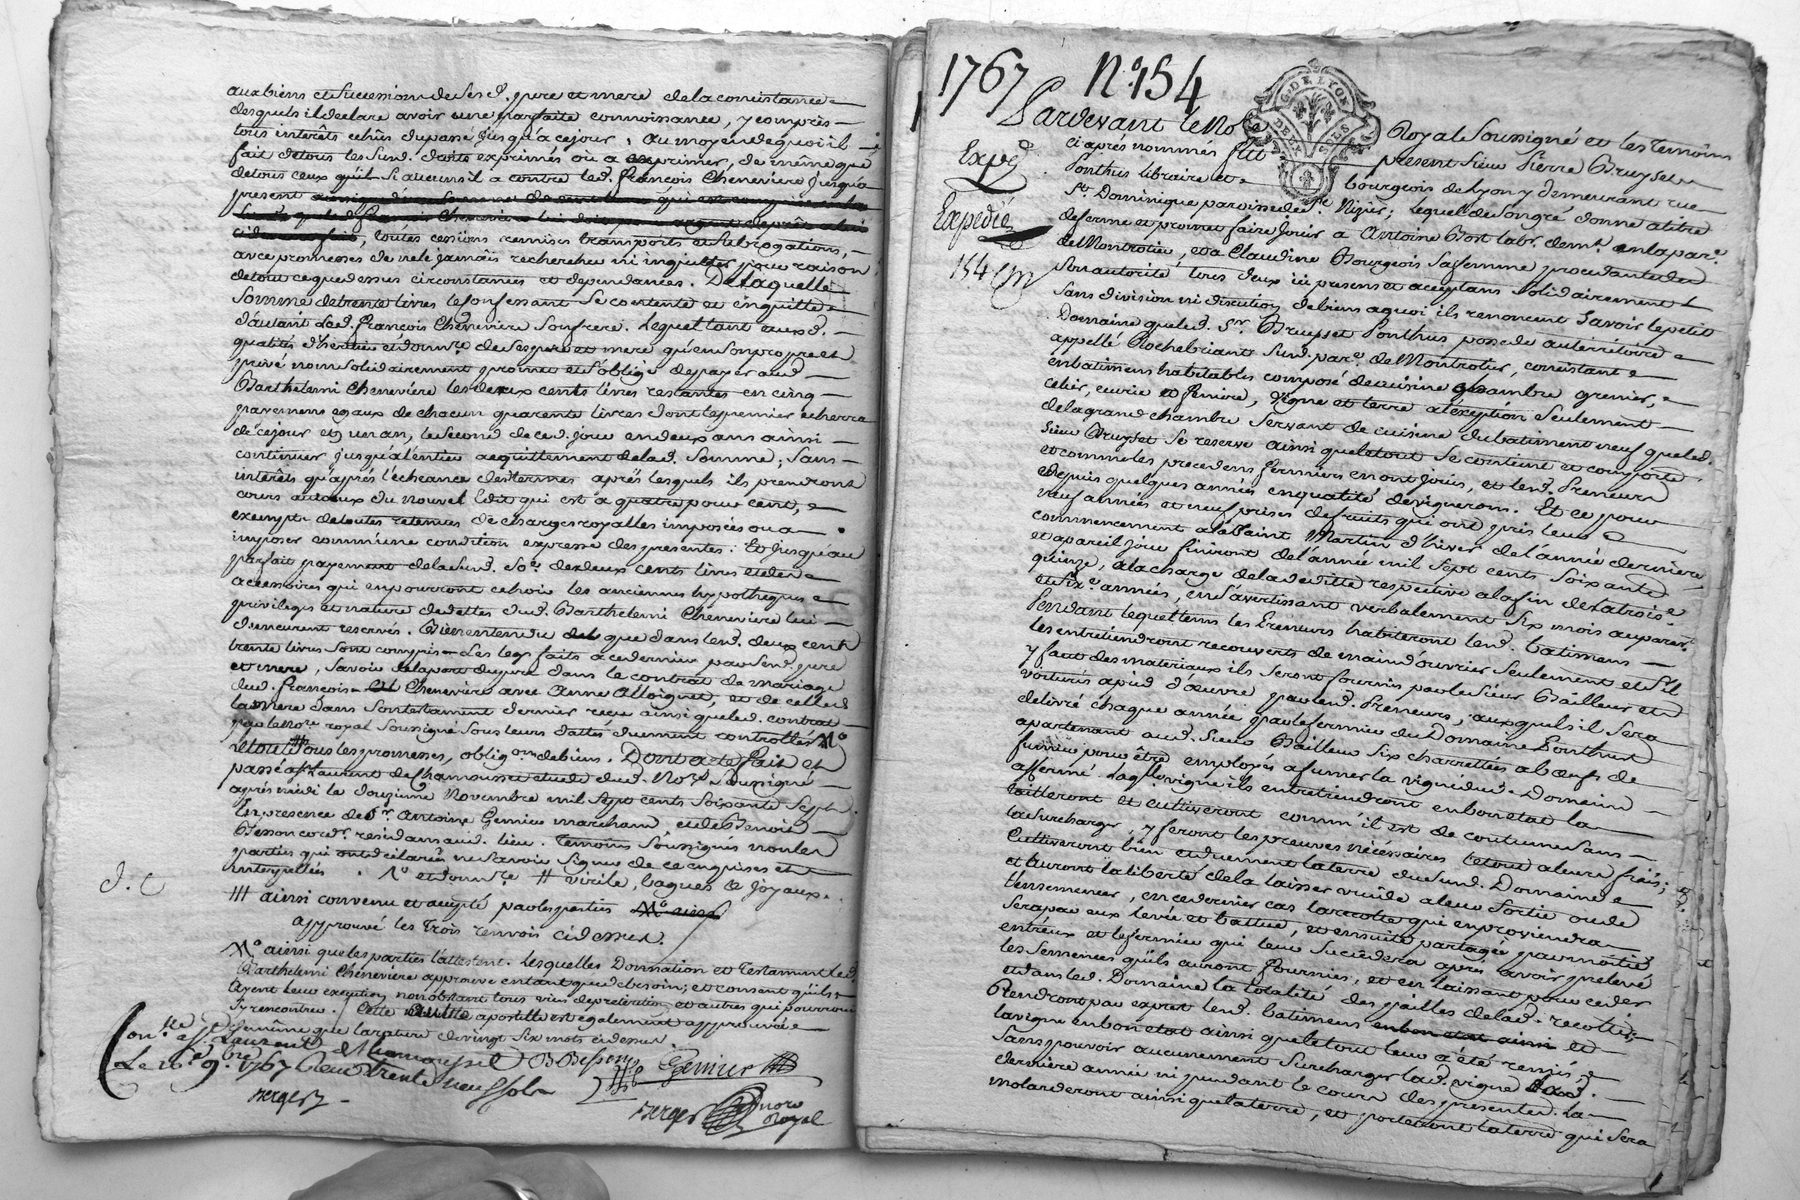 aux biens et Succession de Ses d. pere et mere de la consistance
desquels il declare avoir une parfaite connoissance, y compris
tous interêts echûs du passé jusqu'a ce jour, au moyen de quoi il
fait de tous les Susd. droits exprimés ou a exprimer, de même que
de tous ceux qu'il a contre led. françois Cheneviere jusqu'a
present
toutes cessions remises transports et Subrogations,
avec promesses de ne le jamais rechercher ni inquieter pour raison
de tout ce que dessus circonstances et dependances. De laquelle
Somme de trente livres le Confessant Se contente et en quitte
d'autant led. françois Cheneviere Son frere. Lequel tant aux d.
qualités d'heritier et donnre de Ses pere et mere qu'en Son propre et
privé nom Solidairement promet et S'oblige de payer aud.
Barthelemi Cheneviere les deux cents livres restantes en cinq
payemens egaux de chacun quarente livres dont le premier echerra
de ce jour et un an, le Second de ce d. jour en deux ans ainsi
continuer jusqu'a l'entier acquittement de lad. Somme, Sans
interêts qu'aprés l'echeance des termes aprés lesquels ils prendront
cours au taux du nouvel Edit qui est a quatre pour cent,
exempts de toutes retenues de charges royalles imposées ou a
imposer comme une condition expresse des presentes: Et jusqu'au
parfait payement de la Susd. So.e des deux cents livres et des
accessoires qui en pourront echoir les anciennes hypotheques
privileges et nature de dettes dud. Barthelemi Cheneviere lui
demeurent reservés. Bien entendu que dans lesd. deux cent
trente livres Sont compris Les legs faits a ce dernier par Sesd. pere
et mere, Savoir de la part du pere dans le contrat de mariage
dud. françois Cheneviere avec Anne Alloignet, et de celle de
la mere dans Son testament dernier reçu ainsi que led. contrat
par le Nore royal Soussigné Sous leurs dattes duement controllés No
Le tout Sous les promesses, obligons de biens. Dont acte fait et
passé a St Laurent de Chamousset etude dud. Nore Soussigné
aprés midi le douzieme Novembre mil Sept cents Soixante Sept
En presence de Sr. Antoine Genier marchand et de Benoit
Besson cord.r residans aud. lieu. Temoins Soussignés non les
parties qui ont declarés ne Savoir Signer de ce enquises et
interpellées. No et donnre # virile, bagues & joyaux.
### ainsi convenu et accepté par les parties
approuvé les Trois renvois cidessus.
No ainsi que les parties l'attestent. Lesquelles Donnation et Testament led.
Barthelemi Cheneviere approuve entant que de besoin, et consent qu'ils
ayent leur execution nonobstant tous vices de pretention et autres qui pourroient
S'y rencontrer. Cette apostille est egalement approuvée
de même que la rature de vingt Six mots cidessus
Con.lle a St Laurent de Chamousset
Le 16.e 9.bre 1767 Reçu trente neuf Sols
B Besson
Genier
Berger
Berger Nore
Royal
1767 No. 154
Expé
Expedié
154
G. DE LYON
DEUX SOLS
Pardevant le No Royal Soussigné et les Temoins
ci aprés nommés fut present Sieur Pierre Bruyset
Ponthus libraire et bourgeois de Lyon y demeurant rue
St. Dominique paroisse de St. Nizier; lequel de Son gré donne a titre
de ferme et promet faire jouir a Antoine Bort labr. demt. en la parse.
de Montrotier, et a Claudine Bourgeois Sa femme procedante de
Son autorité tous deux ici presens et acceptans Solidairement
Sans division ni discution de biens a quoi ils renoncent Savoir le petit
Domaine que led. Sr. Bruyset Ponthus possede au territoire
appellé Rochebriant Susd. parse. de Montrotier, consistant
en batimens habitables composé de cuisine chambre grenier,
celier, ecurie et feniere, vigne et terre a l'exception Seulement
de la grand chambre Servant de cuisine du batiment neuf que led.
Sieur Bruyset Se reserve ainsi que le tout Se contient et comporte
et comme les precedens fermiers en ont jouis, et lesd. Preneurs
depuis quelques années en qualité de vignerons. Et ce pour
neuf années et neuf prises de fruits qui ont pris leur
commencement a la Saint Martin d'hiver de l'année derniere
et a pareil jour finiront de l'année mil Sept cents Soixante
quinze, a la charge de la dedite respective a la fin de la trois.e
et Six.e années, en S'avertissant verbalement Six mois auparavt.
Pendant lequel tems les Preneurs habiteront lesd. batimens
les entretiendront recouverts de main d'ouvrier Seulement et S'il
y faut des materiaux ils Seront fournis par le Sieur Bailleur et
voiturés a pied d'œuvre par lesd. Preneurs, auxquels il Sera
delivré chaque année par le fermier du Domaine Ponthus
apartenant aud. Sieur Bailleur Six charrettées a bœufs de
fumier pour être employés a fumer la vigne dud. Domaine
affermé. Laqlle vigne ils entretiendront en bon etat la
tailleront et cultiveront comm'il est de coutume Sans
la Surcharger, y feront les preuves nécessaires le tout a leurs frais;
Cultiveront bien et duement la terre du Susd. Domaine
et auront la liberté de la laisser vuide a leur Sortie ou de
l'ensemencer, en ce dernier cas la recolte qui en proviendra
Sera par eux levée et battue, et ensuite partagée par moitié
entr'eux et le fermier qui leur Succedera aprés avoir prelevé
les Semences qu'ils auront fournies, et en laissant pour ceder
et dans led. Domaine la totalité des pailles de lad. recolte;
Rendront par exprés lesd. batimens et
la vigne en bon etat ainsi que le tout leur a été remis,
Sans pouvoir aucunement Surcharger lad. vigne lad.
derniere année ni pendant le cours des presentes. La
molanderont ainsi que la terre, et porteront la terre qui Sera